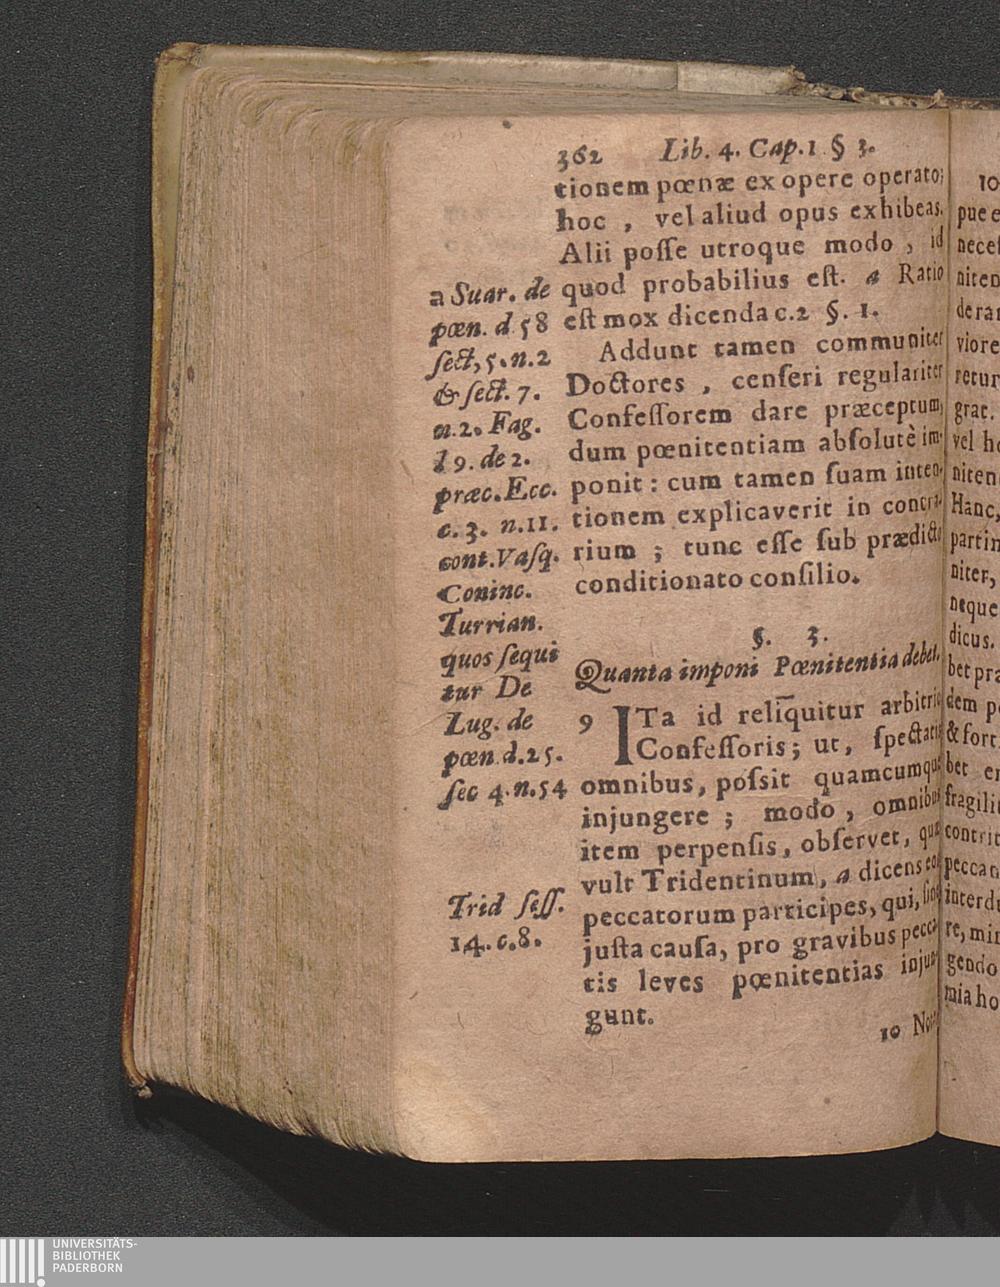 362 Lib. 4. Cap. 1 § 3.
tionem pœnæ ex opere operato;
hoc , vel aliud opus exhibeas.
Alii poſſe utroque modo , id
quod probabilius eſt. a Ratio
eſt mox dicenda c.2 §. 1.
Addunt tamen communiter
Doctores , cenſeri regulariter
Confeſſorem dare præceptum,
dum pœnitentiam abſolutè im-
ponit : cum tamen ſuam inten-
tionem explicaverit in contra-
rium ; tunc eſſe ſub prædicto
conditionato conſilio.
a Suar. de
pœn. d. 58
ſect, 5. n. 2
& ſect. 7.
n. 2. Fag.
l 9. de 2.
præc. Ecc.
c. 3. n. 11.
cont. Vaſq.
Coninc.
Turrian.
quos ſequi
tur De
Lug. de
pœn. d. 25.
ſec 4. n. 54
§. 3.
Quanta imponi Pœnitentia debet.
9 ITa id reliquitur arbitrio
Confeſſoris; ut, ſpectatis
omnibus, poſsit quamcumque
injungere ; modo , omnibus
item perpenſis, obſervet, quæ
vult Tridentinum, a dicens eos
peccatorum participes, qui, ſine
juſta cauſa, pro gravibus pecca-
tis leves pœnitentias injun-
gunt.
Trid ſeſſ.
14. c. 8.
10
10
pue
neceſ
niten
dera
viore
retur
grat.
vel
niten
Hanc,
partim
niter,
neque
dicus.
bet
dem
& fort
bet
fragili
contrit
peccat
interdu
re,
gendo
mia
UNIVERSITÄTS-
BIBLIOTHEK
PADERBORN